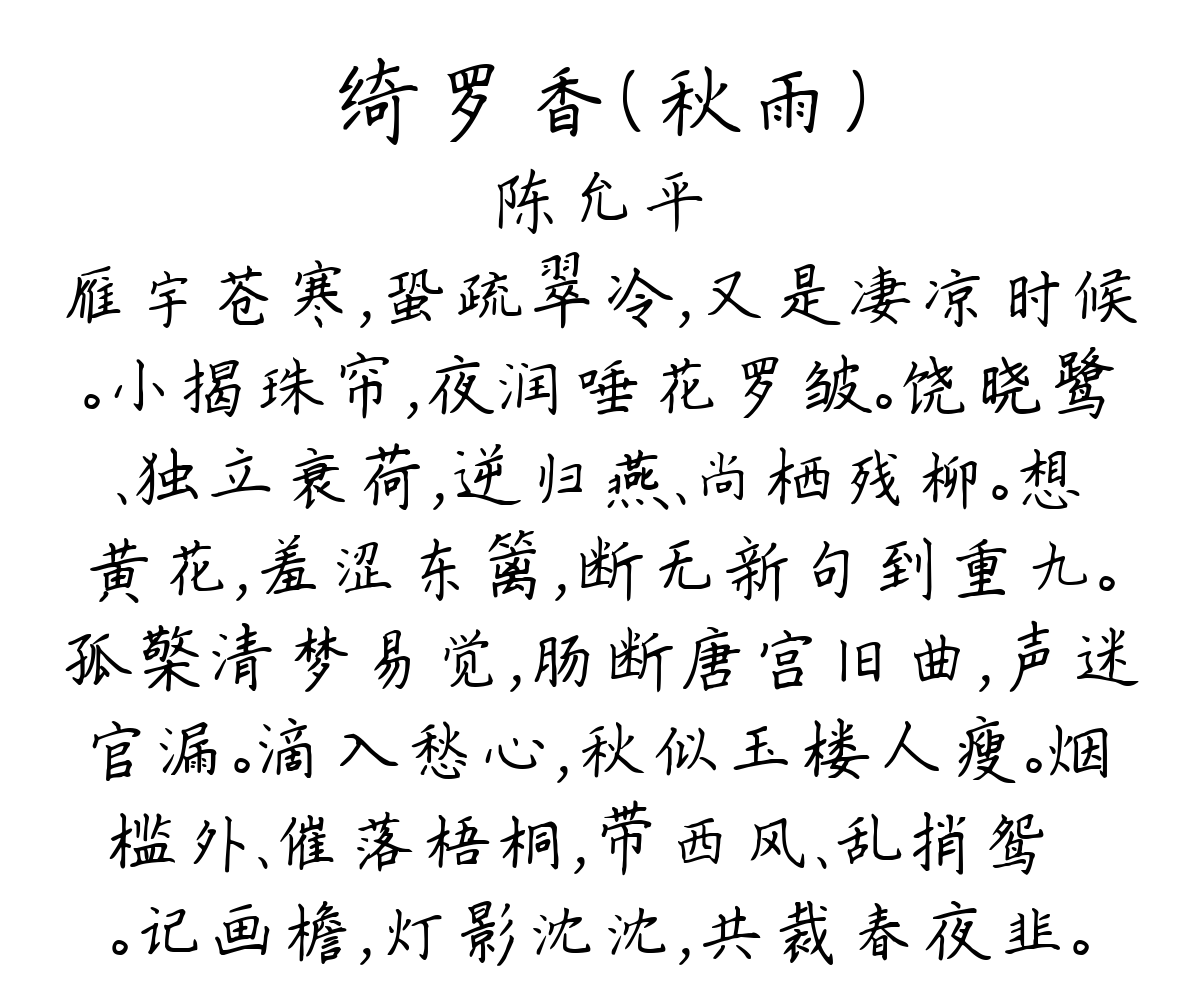 绮罗香(秋雨)
陈允平
雁宇苍寒,蛩疏翠冷,又是凄凉时候
。小揭珠帘,夜润唾花罗皱。饶晓鹭
、独立衰荷,逆归燕、尚栖残柳。想
黄花,羞涩东篱,断无新句到重九。
孤檠清梦易觉,肠断唐宫旧曲,声迷
宫漏。滴入愁心,秋似玉楼人瘦。烟
槛外、催落梧桐,带西风、乱捎鸳
。记画檐,灯影沈沈,共裁春夜韭。